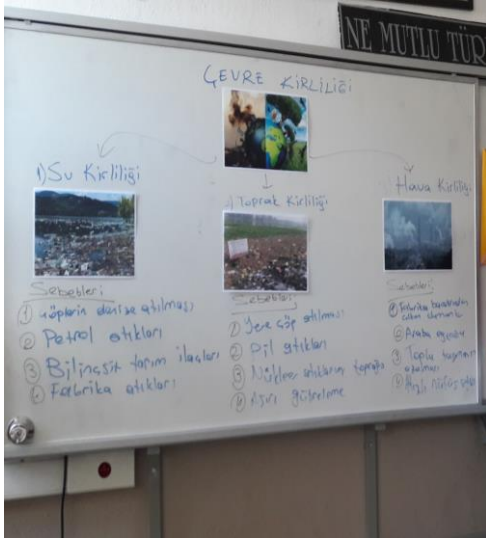 NE MUTLU TÜR
ÇEVRE KİRLİLİĞİ
1) Su Kirliliği
Sebebleri
1 çöplerin denize atılması
2 Petrol atıkları
3 Bilinçsiz tarım ilaçları
4 Fabrika atıkları
Toprak Kirliliği
Sebebleri
1 Yere çöp atılması
2 Pil atıkları
3 Nükleer atıkların toprağa
4 Aşırı gübreleme
Hava Kirliliği
Sebebleri
1 Fabrika bacalarından
çıkan
2 Araba egzozu
3 Toplu taşıma
4 Hızlı nüfus